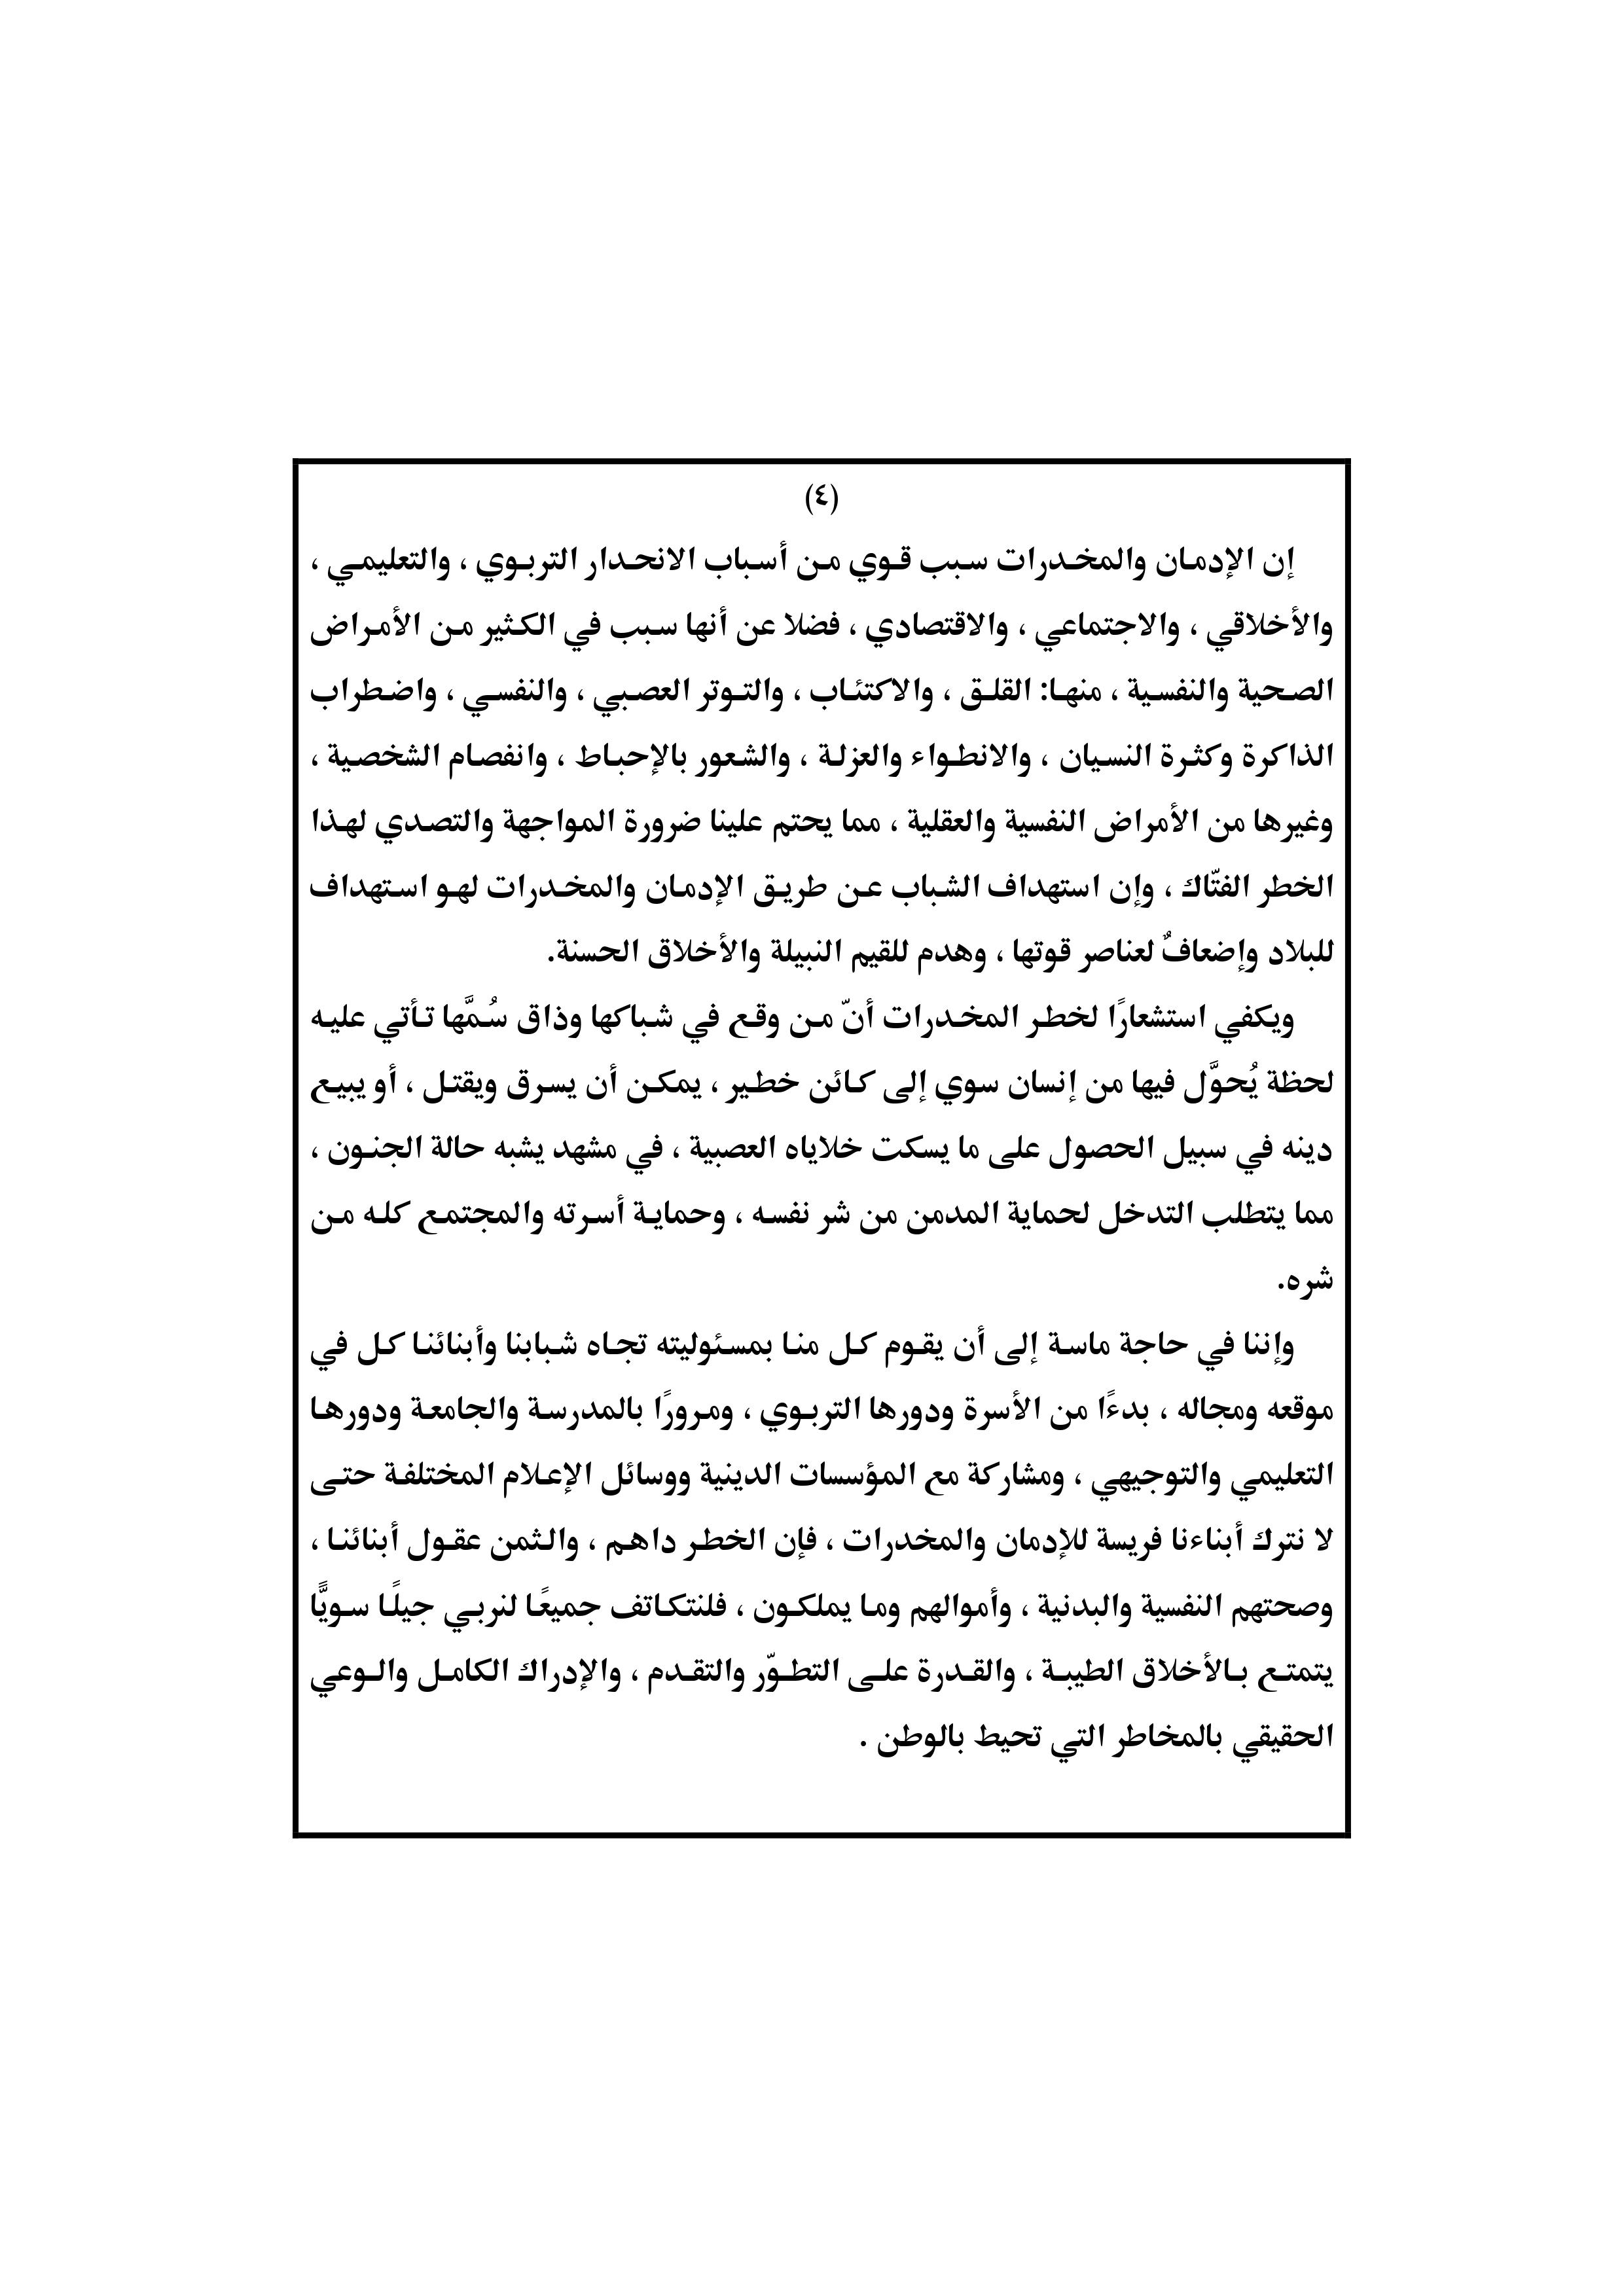 (٤)
إن الإدمان والمخدرات سبب قوي من أسباب الانحدار التربوي ، والتعليمي ،
والأخلاقي ، والاجتماعي ، والاقتصادي ، فضلا عن أنها سبب في الكثير من الأمراض
الصحية والنفسية ، منها: القلق ، والاكتئاب ، والتوتر العصبي ، والنفسي ، واضطراب
الذاكرة وكثرة النسيان ، والانطواء والعزلة ، والشعور بالإحباط ، وانفصام الشخصية ،
وغيرها من الأمراض النفسية والعقلية ، مما يحتم علينا ضرورة المواجهة والتصدي لهذا
الخطر الفتّاك ، وإن استهداف الشباب عن طريق الإدمان والمخدرات لهو استهداف
للبلاد وإضعافٌ لعناصر قوتها ، وهدم للقيم النبيلة والأخلاق الحسنة.
ويكفي استشعارًا لخطر المخدرات أنّ من وقع في شباكها وذاق سُمَّها تأتي عليه
لحظة يُحوَّل فيها من إنسان سوي إلى كائن خطير ، يمكن أن يسرق ويقتل ، أو يبيع
دينه في سبيل الحصول على ما يسكت خلاياه العصبية ، في مشهد يشبه حالة الجنون ،
مما يتطلب التدخل لحماية المدمن من شر نفسه ، وحماية أسرته والمجتمع كله من
شره.
وإننا في حاجة ماسة إلى أن يقوم كل منا بمسئوليته تجاه شبابنا وأبنائنا كل في
موقعه ومجاله ، بدءًا من الأسرة ودورها التربوي ، ومرورًا بالمدرسة والجامعة ودورها
التعليمي والتوجيهي ، ومشاركة مع المؤسسات الدينية ووسائل الإعلام المختلفة حتى
لا نترك أبناءنا فريسة للإدمان والمخدرات ، فإن الخطر داهم ، والثمن عقول أبنائنا ،
وصحتهم النفسية والبدنية ، وأموالهم وما يملكون ، فلنتكاتف جميعًا لنربي جيلًا سويًّا
يتمتع بالأخلاق الطيبة ، والقدرة على التطوّر والتقدم ، والإدراك الكامل والوعي
الحقيقي بالمخاطر التي تحيط بالوطن .